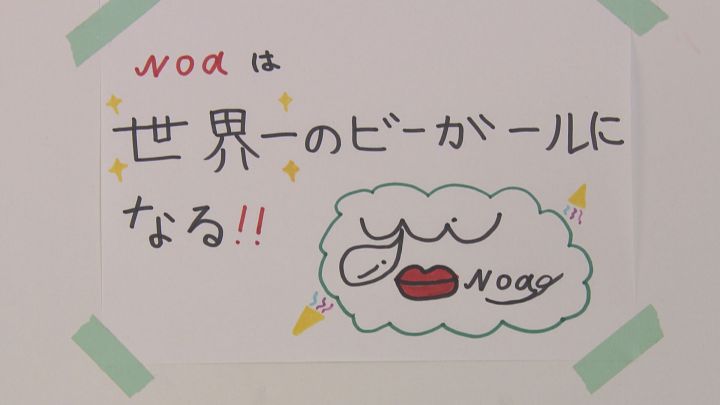 Noa は
世界一のビーガールに
なる!!
Noa